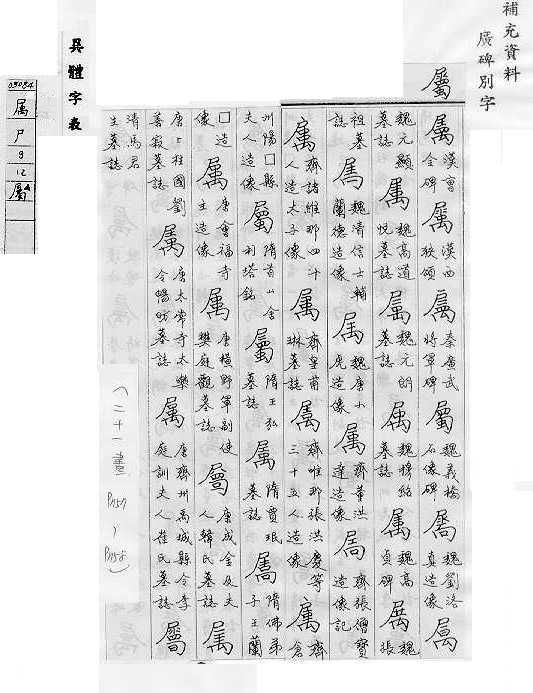 補充資料
廣碑別字
異體字表
03034
属
尸
9
12
屬
屬
屬 漢曹全碑 屬 漢西狹頌 屬 秦廣武將軍碑 屬 魏義橋石像碑 屬 魏劉洛真造像 属
魏元顯墓誌 属 魏高道悅墓誌 属 魏元朗墓誌 属 魏穆紹墓誌 属 魏高貞碑 属 魏張
祖墓誌 属 魏清信士輔蘭德造像 属 魏唐小虎造像 属 齊董洪達造像 属 齊張僧寶造像記
属 齊諸維那四十人造太子像 属 齊皇甫琳墓誌 属 齊維那張洪慶等三十五人造像 属 齊倉
州陽□縣夫人造像 屬 隋首山舍利塔銘 屬 隋王弘墓誌 属 隋賈珉墓誌 属 隋佛弟子王蘭
□造像 属 唐會福寺主造像 属 唐橫野軍副使樊庭觀墓誌 屬 唐成金及夫人韓氏墓誌 属
唐上柱國劉善寂墓誌 属 唐太常寺太樂令暢昉墓誌 属 唐齊州禹城縣令李庭訓夫人崔氏墓誌 屬
清馬君主墓誌
（二十一畫 P1157、P1158）